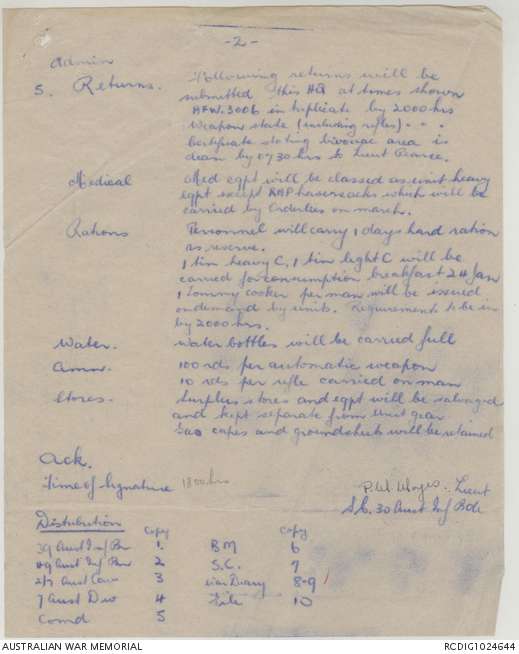 -2-
Admin
5. Returns. Following returns will be
submitted this HQ at times shown
AFW.3006 in triplicate by 2000 hrs
Weapon state (including rifles) " "
Certificate stating bivouac area is
clean by 0730 hrs to Lieut Pearse.
Medical Med eqpt will be classed as unit heavy
eqpt except RAP haversacks which will be
carried by Orderlies on march.
Rations Personnel will carry 1 days hard ration
as reserve.
1 tin heavy C, 1 tin light C will be
carried for consumption breakfast 24 Jan
1 Tommy cooker per man will be issued
on demand by units. Requirements to be in
by 2000 hrs.
Water. water bottles will be carried full
Amn. 100 rds per automatic weapon
10 rds per rifle carried on man
Stores. Surplus stores and eqpt will be salvaged
and kept separate from unit gear
Gas capes and groundsheets will be retained
Ack.
Time of Signature 1800 hrs
Lieut
S.C. 30 Aust Inf Bde
Distribution
Copy Copy
39 Aust Inf Bn 1 BM 6
49 Aust Inf Bn 2 S.C. 7
2/7 Aust Cav 3 War Diary 8-9
7 Aust Div 4 File 10
Comd 5
AUSTRALIAN WAR MEMORIAL
RCDIG1024644